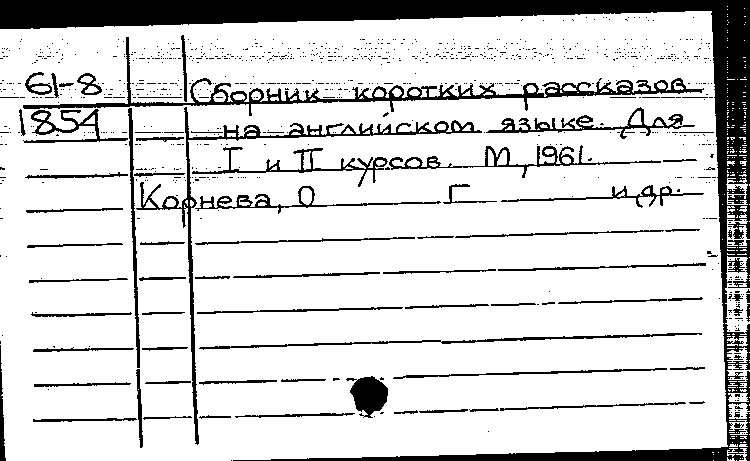 61-8 Сборник коротких рассказов
1854 на английском языке. Для
I и II курсов. М, 1961.
Корнева, О Г и др.